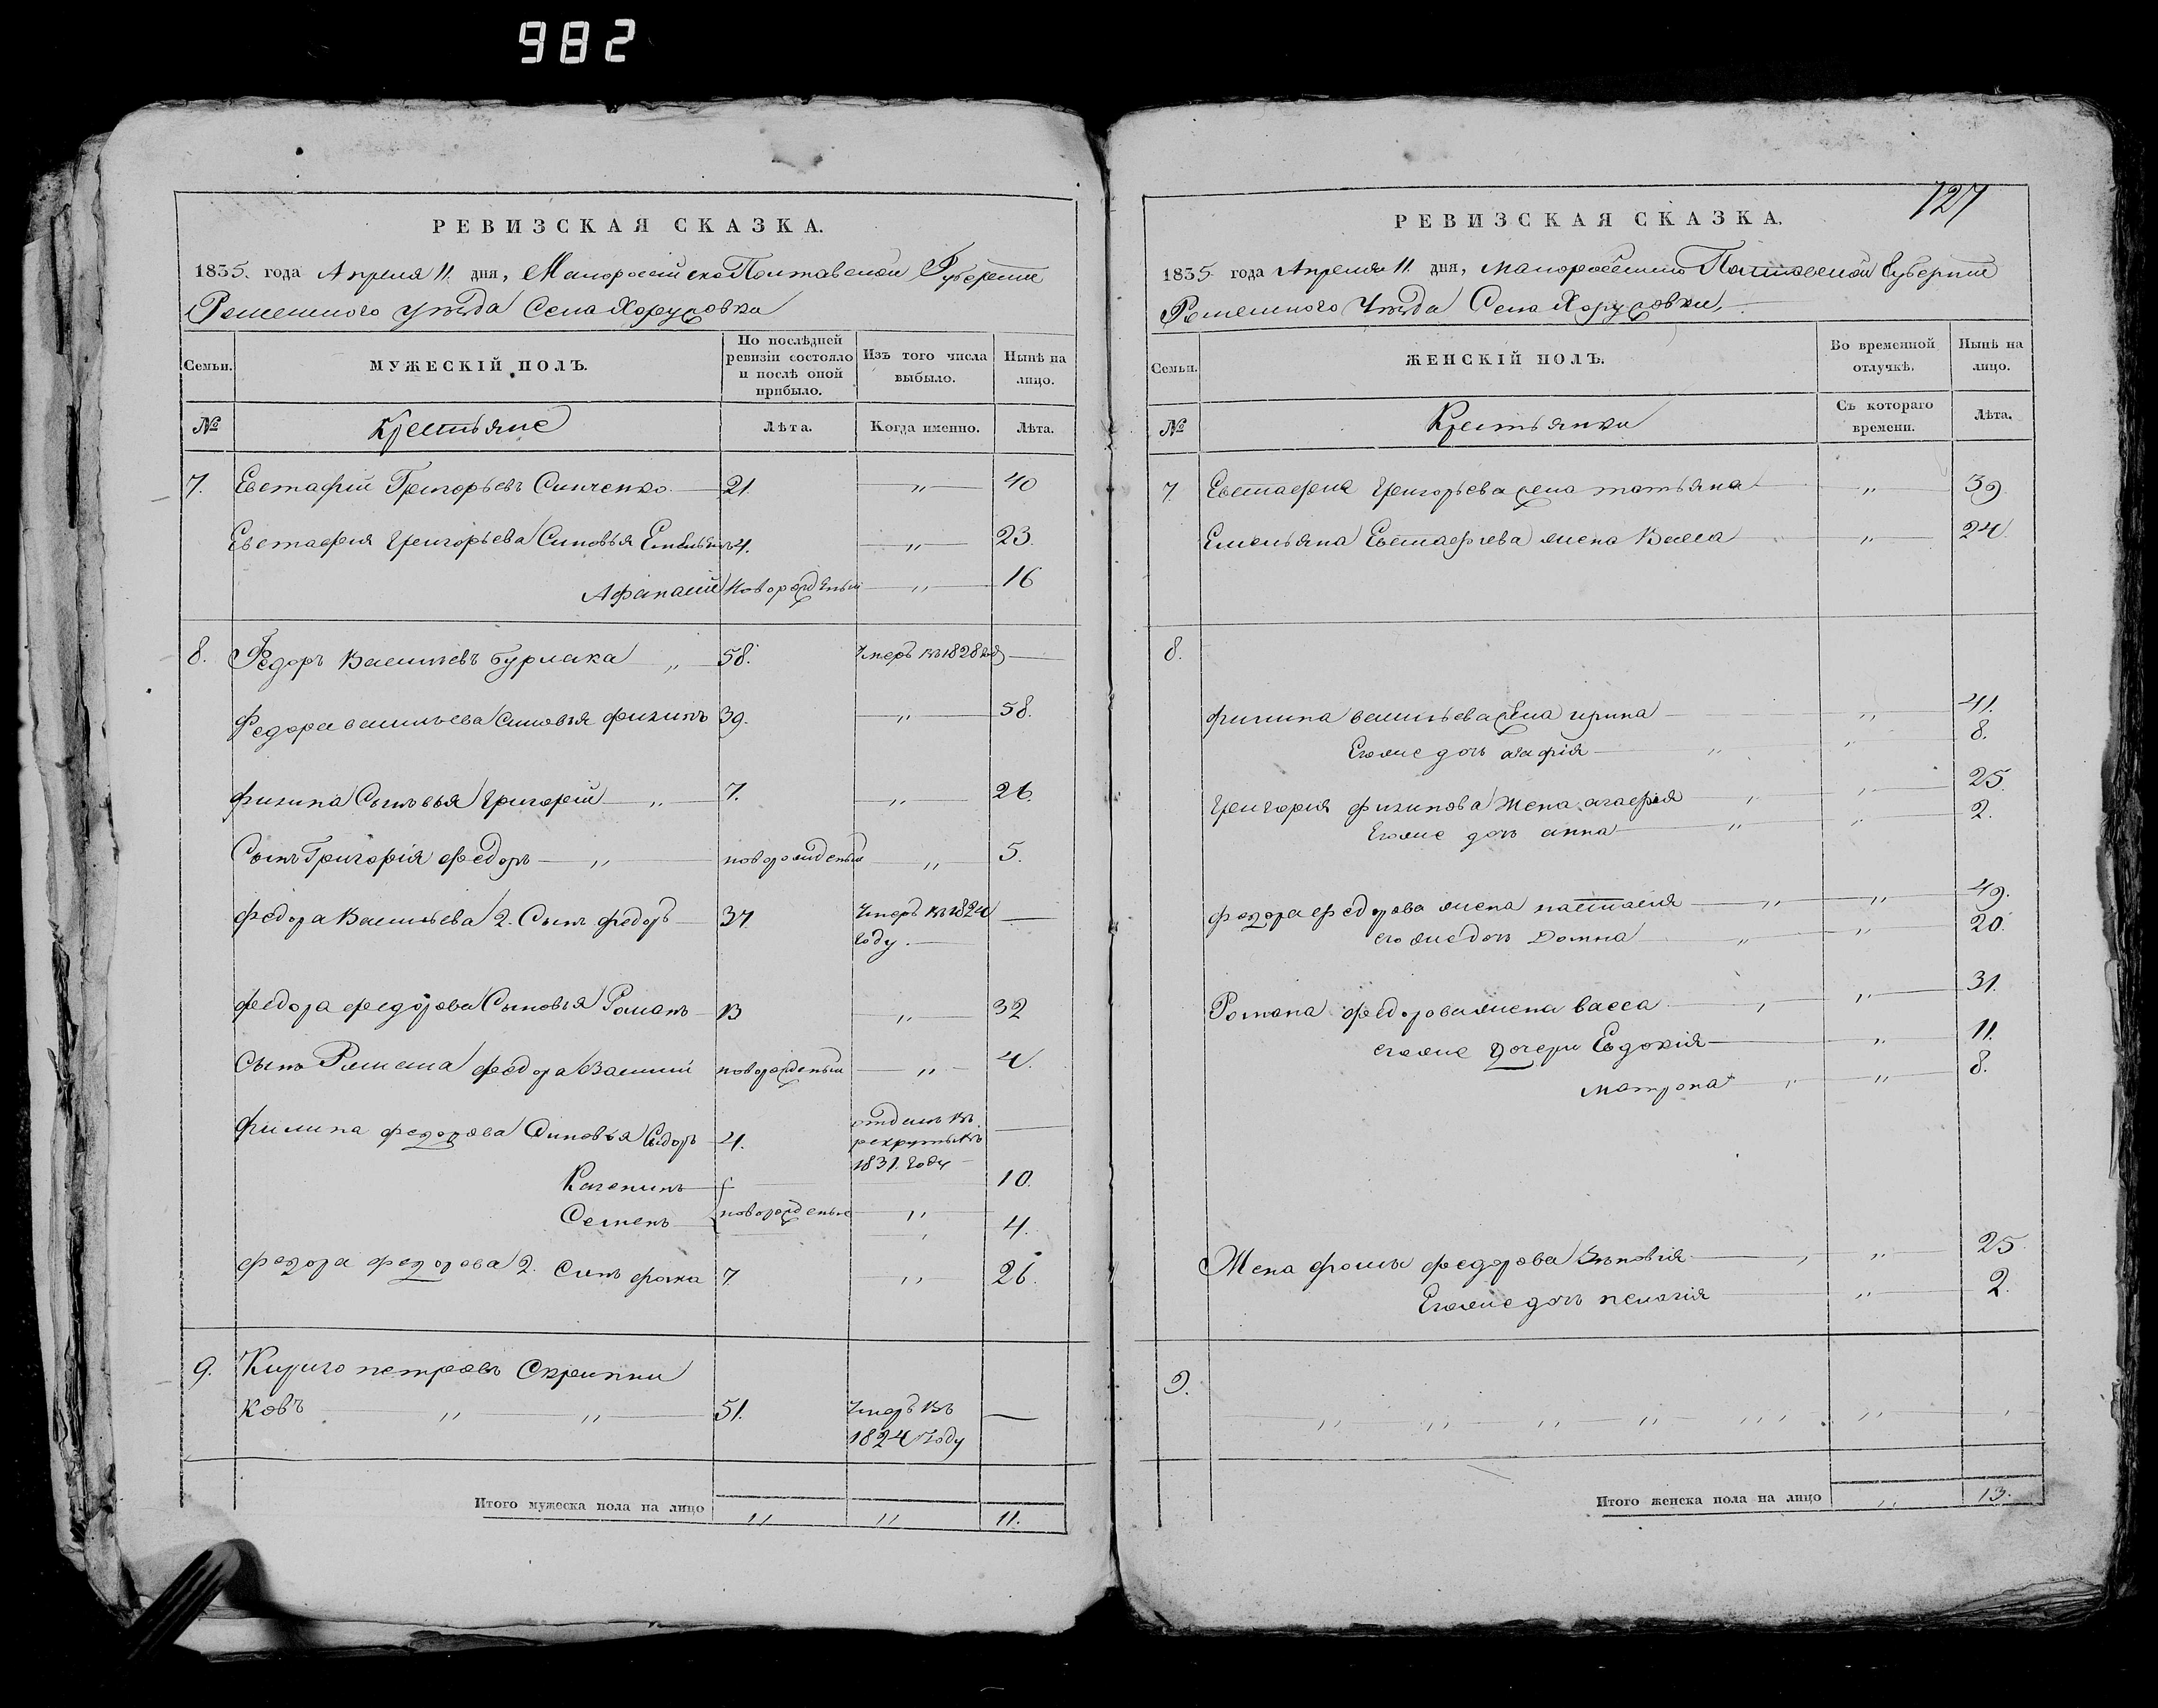 982
РЕВИЗСКАЯ СКАЗКА.
1835. года Апреля 11. дня, Малороссийско Полтавской Губернии
Роменского уезда Села Хоружовки
Семьи.
МУЖЕСКІЙ ПОЛЪ.
По послѣдней ревизіи состояло и послѣ оной прибыло.
Изъ того числа выбыло.
Нынѣ на лицо.
№ Крестьяне Лѣта. Когда именно. Лѣта.
7. Евстафій Григорьевъ Синченко 21. " 40
Евстафия Григорьева Синовья Емельянъ 4. " 23.
Афанасий Новорожденый " 16
8. Федоръ Васильевъ Бурлака " 58. Умеръ въ 1828 год
Федора васильева синовья филипъ 39. " 58.
филипа Сыновья Григорий " 7. " 26.
Сынъ Григорія федоръ " новорожденый " 5.
федора Васильева 2. Сынъ федоръ 37 Умеръ въ 1824
году.
федора федорова Сыновья Романъ 13 " 32
Сынъ Романа федора Василий новорожденый " 4.
филипа федорова Синовья Сидоръ 4. отданъ въ
рекруты въ
1831. году
10.
Семенъ новорожденые " 4.
федора федорова 2. Сынъ фома 7 " 26.
9. Кирило петровъ Скрипни
ковъ " " 51. Умеръ въ
1824 году
Итого мужеска пола на лицо " " 11.
127
РЕВИЗСКАЯ СКАЗКА.
1835 года Апреля 11. дня, малороссийско Полтавской Губернии
Роменского Уезда Села Хоружовки,
Семьи.
ЖЕНСКІЙ ПОЛЪ.
Во временной отлучкѣ.
Нынѣ на лицо.
№ Крестьянки Съ котораго времени. Лѣта.
7 Евстафия Григорьева жена татьяна " 39
Емельяна Евстафиева жена Васса " 24
8.
филипа васильева жена ирина " 41.
Егоже дочь агафія " " 8.
Григория филипова Жена агафия " " 25.
Егоже дочь анна " " 2.
федора федорова жена настасия " " 49.
егоже дочь Домна " " 20.
Романа федорова жена васса " " 31.
егоже дочери Евдокія " 11.
матрона " " 8.
Жена фомы федорова Зѣновія " 25
Егоже дочь пелагія " 2.
9.
" " " " " " "
Итого женска пола на лицо " 13.